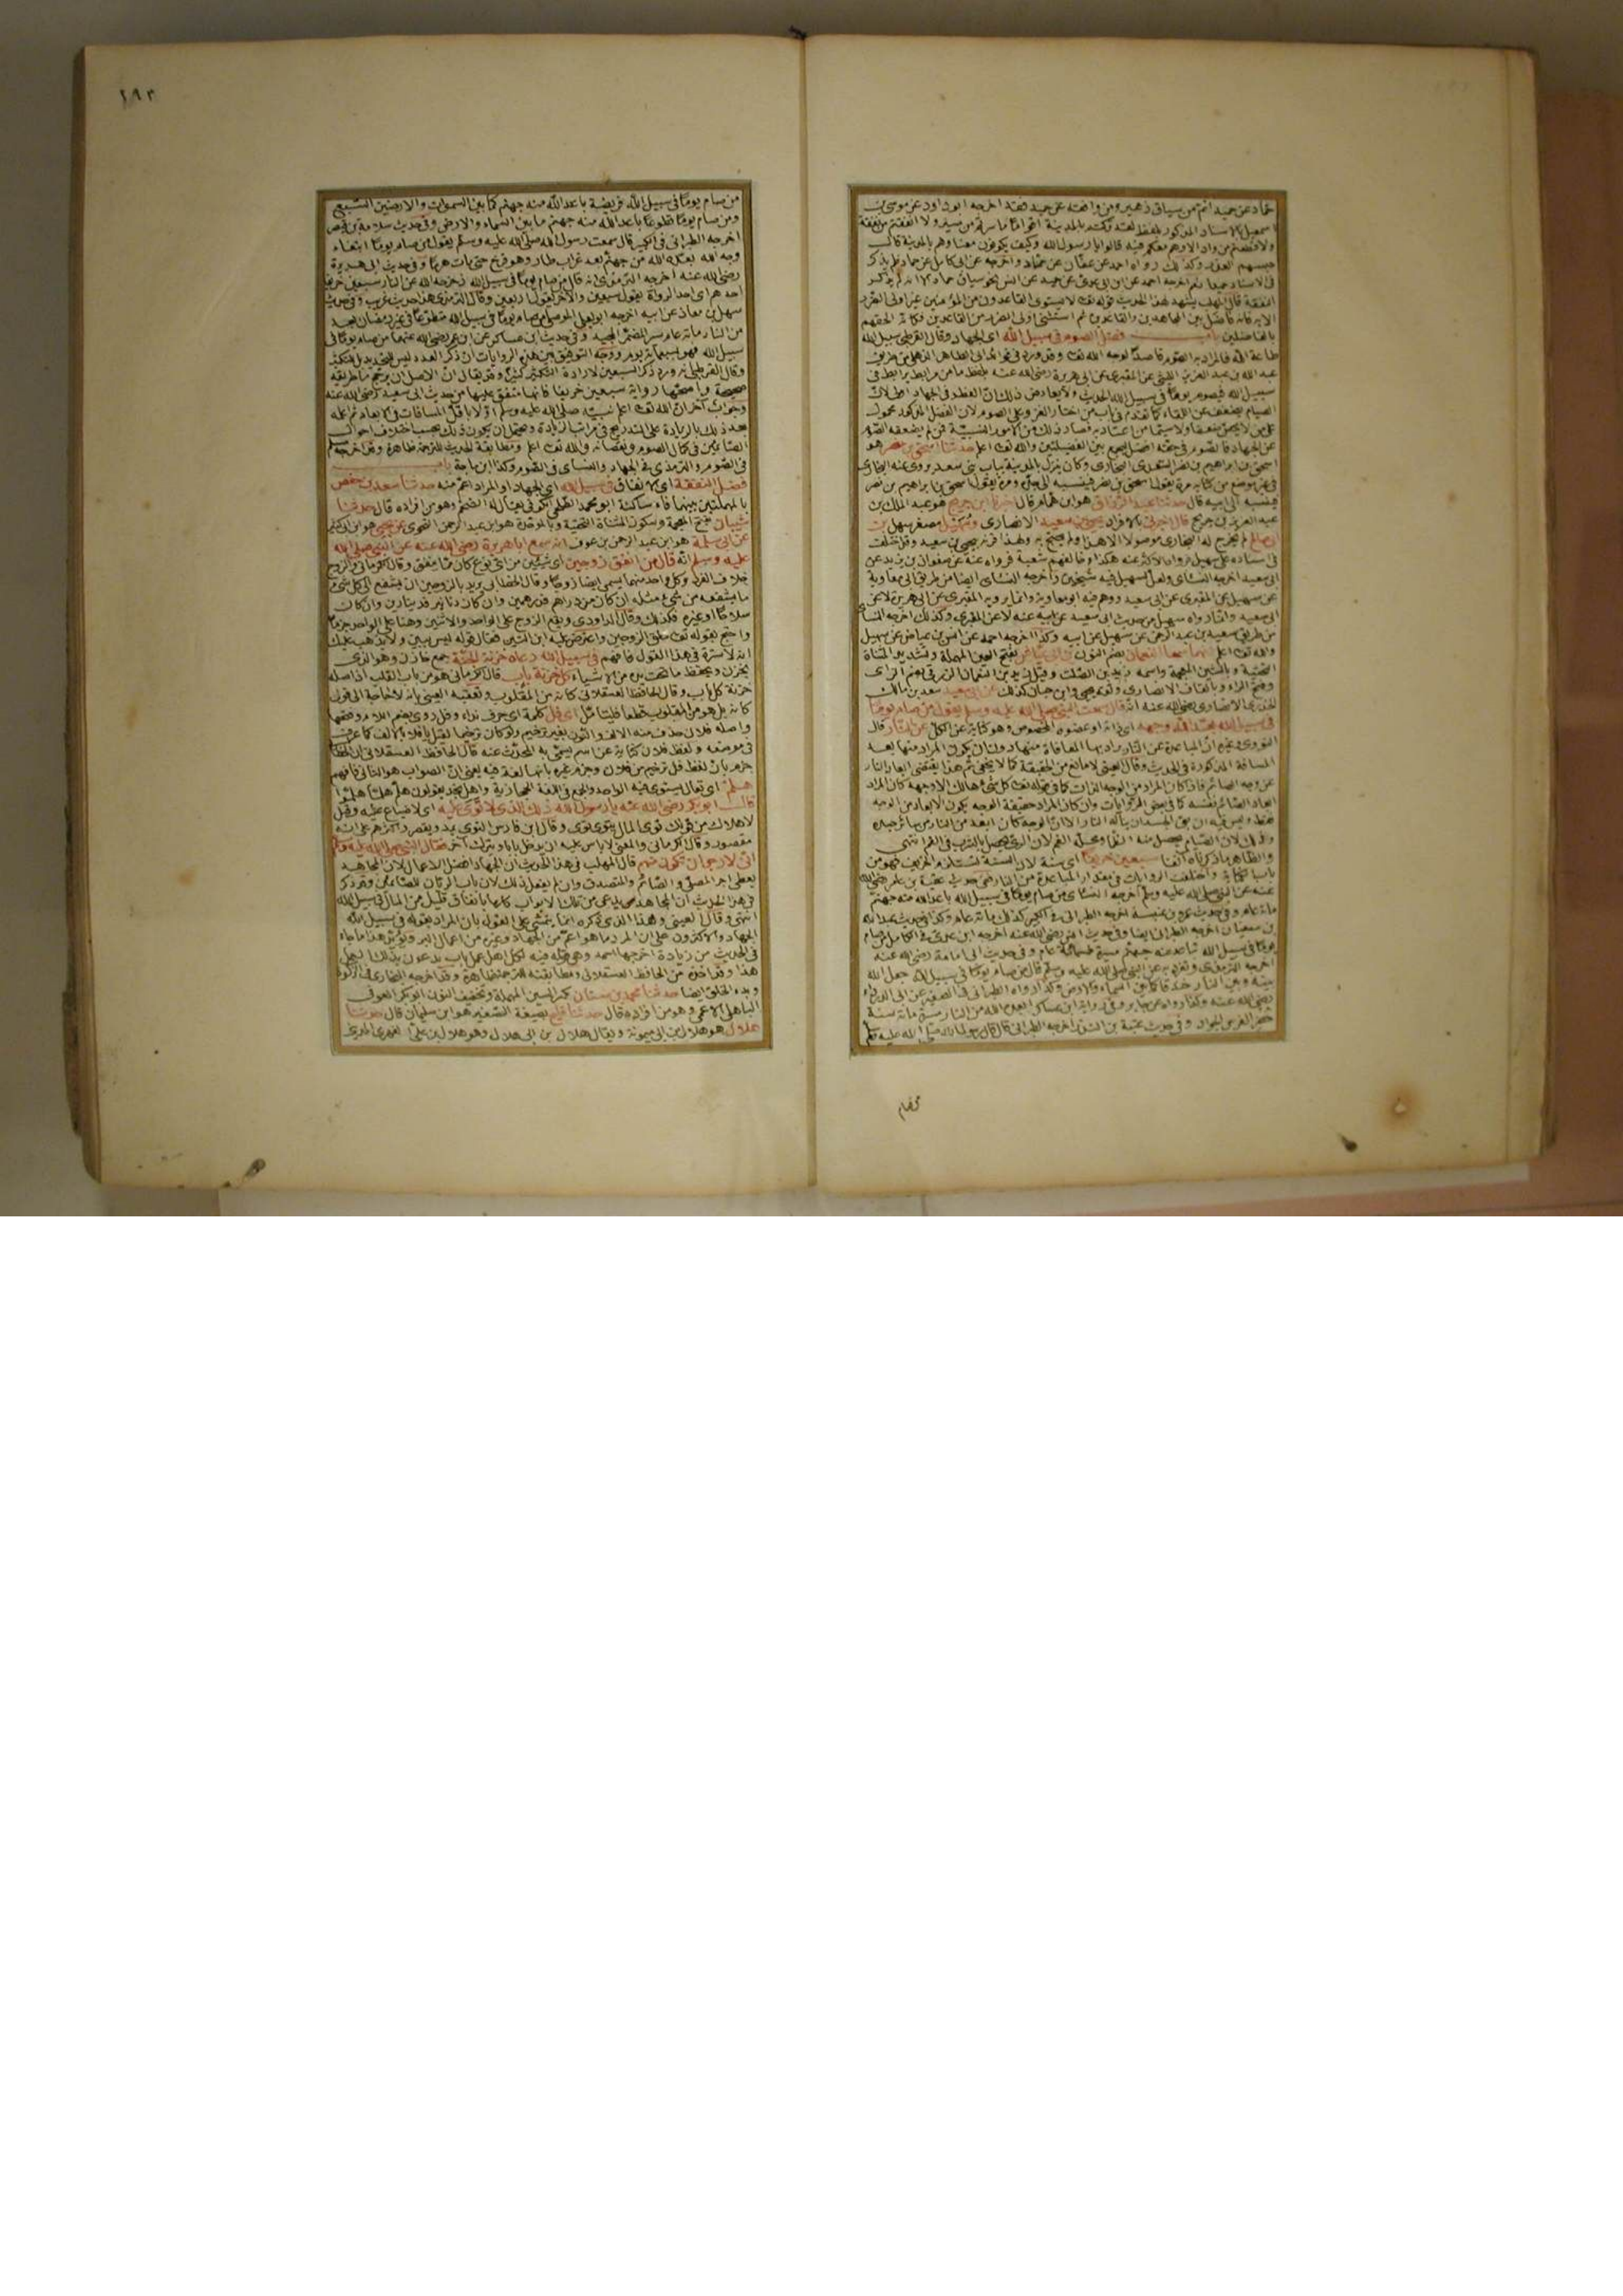 حماد عن حميد اتم من سياق زهير ومن وافقه عن حميد فقد اخرجه ابو داود عن موسى بن
اسمعيل بالاسناد المذكور بلفظ لقد تركتم بالمدينة اقواما ما سرتم من مسير ولا انفقتم من نفقة
ولا قطعتم من واد الا وهم معكم فيه قالوا يا رسول الله وكيف يكونون معنا وهم بالمدينة قال
حبسهم العذر وكذلك رواه احمد عن عفان عن حماد واخرجه عن ابى كامل عن حماد فلم يذكر
فى الاسناد
النفقة قال المهلب يشهد لهذا الحديث قوله تعالى لا يستوى القاعدون من المؤمنين غير اولى الضرر
الاية فانه فاضل بين المجاهدين والقاعدين ثم استثنى اولى الضرر من القاعدين فكانه الحقهم
بالفاضلين باب فضل الصوم فى سبيل الله اى الجهاد وقال القرطبى سبيل الله
طاعة الله فالمراد به الصوم قاصدا لوجه الله
عبد الله بن عبد العزيز الليثى عن المقبرى عن ابى هريرة رضى الله عنه بلفظ ما من مرابط يرابط فى
سبيل الله فيصوم يوما فى سبيل الله الحديث ولا يعارض ذلك ان الفطر فى الجهاد اولى لان
الصيام يضعف عن اللقاء كما تقدم فى باب من اختار الغزو على الصوم لان الفضل المذكور محمول
على من لا يخشى ضعفا ولا سيما من اعتاد به فصار ذلك من الامور النسبية فمن لم يضعفه الصوم
عن الجهاد فالصوم فى حقه افضل ليجمع بين الفضيلتين والله تعالى اعلم حدثنا اسحق بن نصر هو
اسحق بن ابراهيم بن نصر السعدى البخارى وكان ينزل بالمدينة بباب بنى سعد روى عنه البخارى
فى غير موضع من كتابه مرة يقول اسحق بن نصر فينسبه الى جده ومرة يقول اسحق بن ابراهيم بن نصر
فينسبه الى ابيه قال حدثنا عبد الرزاق هو ابن همام قال اخبرنا ابن جريج هو عبد الملك بن
عبد العزيز بن جريج قال اخبرنى بالافراد يحيى بن سعيد الانصارى وسهيل مصغر سهل بن
ابى صالح لم يخرج له البخارى موصولا الا هذا ولم يحتج به ولهذا قرنه بيحيى بن سعيد وقد اختلف
فى اسناده على سهيل فرواه الاكثر عنه هكذا وخالفهم شعبة فرواه عنه عن صفوان بن يزيد عن
ابى سعيد اخرجه النسائى ولعل لسهيل فيه شيخين واخرجه النسائى ايضا من طريق ابى معاوية
عن سهيل عن المقبرى عن ابى سعيد ووهم فيه ابو معاوية وانما يرويه المقبرى عن ابى هريرة لا عن
ابى سعيد وانما رواه سهيل من حديث ابى سعيد عن ابيه عنه لا عن المقبرى وكذلك اخرجه النسائى
من طريق سعيد بن عبد الرحمن عن سهيل عن ابيه وكذا اخرجه احمد عن انس بن عياض عن سهيل
والله تعالى اعلم انهما سمعا النعمان بضم النون بن ابى عياش بفتح العين المهملة وتشديد المثناة
التحتية وبالشين المعجمة واسمه زيد بن الصلت وقيل زيد بن النعمان الزرقى بضم الزاى
وفتح الراء وبالقاف الانصارى وثقه يحيى وابن حبان كذلك عن ابى سعيد سعد بن مالك
الخدرى الانصارى رضى الله عنه انه قال سمعت النبى صلى الله عليه وسلم يقول من صام يوما
فى سبيل الله بعد الله وجهه اى ذاته او عضوه المخصوص وهو كناية عن الكل عن النار قال
النووى وغيره ان المباعدة عن النار يراد بها المعافاة منها وان يكون المراد منها بعد
المسافة المذكورة فى الحديث وقال العينى لا مانع من الحقيقة كما لا يخفى ثم هذا يقتضى ابعاد النار
عن وجه الصائم فاذا كان المراد من الوجه الذات كما فى قوله تعالى كل شىء هالك الا وجهه كان المراد
ابعاد الصائم نفسه كما فى بعض الروايات وان كان المراد حقيقة الوجه يكون الابعاد من الوجه
فقط وليس فيه ان يبقى الجسد ان يناله النار الا ان الوجه كان ابعد من النار من سائر جسده
وذلك لان الصيام يحصل منه الظما ومحله الفم لان الرى يحصل بالشرب فى الفم انتهى
والظاهر ما ذكرناه آنفا سبعين خريفا اى سنة لان السنة تستلزم الخريف فهو من
باب الكناية واختلفت الروايات فى مقدار المباعدة من النار ففى حديث عقبة بن عامر رضى الله
عنه عن النبى صلى الله عليه وسلم اخرجه النسائى من صام يوما فى سبيل الله باعد الله منه جهنم
مائة عام وفى حديث عمرو بن عبسة اخرجه الطبرانى فى الكبير كذلك مائة عام وكذا فى حديث عبد الله
بن سفيان اخرجه الطبرانى ايضا وفى حديث انس رضى الله عنه اخرجه ابن عدى فى الكامل من صام
يوما فى سبيل الله تباعدت عنه جهنم مسيرة خمسمائة عام وفى حديث ابى امامة رضى الله عنه
اخرجه الترمذى وتفرد به عن النبى صلى الله عليه وسلم قال من صام يوما فى سبيل الله جعل الله
بينه وبين النار خندقا كما بين السماء والارض وكذا رواه الطبرانى فى الصغير عن ابى الدرداء
رضى الله عنه وكذا رواه عن جابر وفى رواية ابن عساكر ابعده الله من النار مسيرة مائة سنة
حضر الفرس الجواد وفى حديث عتبة بن الندر اخرجه الطبرانى قال قال رسول الله صلى الله عليه وسلم
من صام
١٩٣
من صام يوما فى سبيل الله فريضة باعد الله منه جهنم كما بين السموات والارضين السبع
ومن صام يوما تطوعا باعد الله منه جهنم ما بين السماء والارض وفى حديث سلامة بن قيصر
اخرجه الطبرانى فى الكبير قال سمعت رسول الله صلى الله عليه وسلم يقول من صام يوما ابتغاء
وجه الله بعده الله من جهنم بعد غراب طار وهو فرخ حتى مات هرما وفى حديث ابى هريرة
رضى الله عنه اخرجه الترمذى انه قال من صام يوما فى سبيل الله زحزحه الله عن النار سبعين خريفا
احدهم اى احد الرواة يقول سبعين والآخر يقول اربعين وقال الترمذى هذا حديث غريب وفى حديث
سهل بن معاذ عن ابيه اخرجه ابو يعلى الموصلى من صام يوما فى سبيل الله متطوعا فى غير رمضان بعد
من النار مائة عام سير المضمر المجيد وفى حديث ابن عساكر عن ابن عمر رضى الله عنهما من صام يوما فى
سبيل الله فهو بسبعمائة يوم ووجه التوفيق بين هذه الروايات ان ذكر العدد ليس للتحديد بل للتكثير
وقال القرطبى انه ورد ذكر السبعين لارادة التكثير كثيرا وقد يقال ان الاصل ان يرجح ما طريقه
صحيحة واصحها رواية سبعين خريفا فانها متفق عليها من حديث ابى سعيد رضى الله عنه
وجواب آخر ان الله تعالى اعلم نبيه صلى الله عليه وسلم اولا باقل المسافات فى الابعاد ثم اعلمه
بعد ذلك بالزيادة على التدريج فى مراتب الزيادة ويحتمل ان يكون ذلك بحسب اختلاف احوال
الصائمين فى كمال الصوم ونقصانه والله تعالى اعلم ومطابقة الحديث للترجمة ظاهرة وقد اخرجه مسلم
فى الصوم والترمذى فى الجهاد والنسائى فى الصوم وكذا ابن ماجة باب
فضل النفقة اى الانفاق فى سبيل الله اى الجهاد او المراد اعم منه حدثنا سعد بن حفص
بالمهملتين بينهما فاء ساكنة ابو محمد الطلحى الكوفى يقال له الضخم وهو من افراده قال حدثنا
شيبان بفتح المعجمة وسكون المثناة التحتية وبالموحدة هو ابن عبد الرحمن النحوى عن يحيى هو ابن ابى كثير
عن ابى سلمة هو ابن عبد الرحمن بن عوف انه سمع ابا هريرة رضى الله عنه عن النبى صلى الله
عليه وسلم انه قال من انفق زوجين اى شيئين من اى نوع كان مما ينفق وقال الكرمانى والزوج
خلاف الفرد وكل واحد منهما يسمى ايضا زوجا وقال الخطابى يريد بالزوجين ان يشفع الى كل شىء
ما يشفعه من شىء مثله ان كان من دراهم فدرهمين وان كان دنانير فدينارين وان كان
سلاحا او غيره فكذلك وقال الداودى ويقع الزوج على الواحد والاثنين وهنا على الواحد جزما
واحتج بقوله تعالى خلق الزوجين واعترض عليه ابن التين فقال قوله ليس ببين ولا يذهب عليك
انه لا سترة فى هذا القول فافهم فى سبيل الله دعاه خزنة الجنة جمع خازن وهو الذى
يخزن ويحفظ ما تحت يده من الاشياء كل خزنة باب قال الكرمانى هو من باب القلب اذ اصله
خزنة كل باب وقال الحافظ العسقلانى كانه من المقلوب وتعقبه العينى بانه لا حاجة الى قوله
كانه بل هو من المقلوب قطعا فليتامل اى فل كلمة اى حرف نداء وفل روى بضم اللام وفتحها
واصله فلان حذف منه الالف والنون بغير ترخيم ولو كان ترخيما لقيل يا فلا بالالف كما عرف
فى موضعه ولفظ فلان كناية عن اسم يسمى به المحدث عنه قال الحافظ العسقلانى ان الخطابى
جزم بان لفظ فل ترخيم من فلان وجزم غيره بانها لغة فيه يعنى ان الصواب هو الثانى فافهم
هلم اى تعال يستوى فيه الواحد والجمع فى اللغة الحجازية واهل نجد يقولون هلم هلما هلموا
قال ابو بكر رضى الله عنه يا رسول الله ذلك الذى لا توى عليه اى لا ضياع عليه وقيل
لا هلاك من قولك توى المال يتوى توى وقال ابن فارس التوى يمد ويقصر واكثرهم على انه
مقصور وقال الكرمانى والمعنى لا باس عليه ان يدخل بابا ويترك آخر فقال النبى صلى الله عليه وسلم
انى لارجو ان تكون منهم قال المهلب فى هذا الحديث ان الجهاد افضل الاعمال لان المجاهد
يعطى اجر المصلى والصائم والمتصدق وان لم يفعل ذلك لان باب الريان للصائمين وقد ذكر
فى هذا الحديث ان المجاهد يدعى من تلك الابواب كلها بانفاق قليل من المال فى سبيل الله
انتهى وقال العينى وهذا الذى ذكره انما يتمشى على القول بان المراد بقوله فى سبيل الله
الجهاد والاكثرون على ان المراد ما هو اعم من الجهاد وغيره من اعمال البر ويؤيد هذا ما جاء
فى الحديث من زيادة اخرجها احمد وهى قوله فيه لكل اهل عمل باب يدعون بذلك العمل
هذا وقد اخذه من الحافظ العسقلانى ومطابقته للترجمة ظاهرة وقد اخرجه البخارى فى
وبدء الخلق ايضا حدثنا محمد بن سنان بكسر السين المهملة وتخفيف النون ابو بكر العوقى
الباهلى الاعمى وهو من افراده قال حدثنا فليح بصيغة التصغير هو ابن سليمان قال حدثنا
هلال هو هلال بن ابى ميمونة ويقال هلال بن ابى هلال وهو هلال بن على الفهرى المدنى